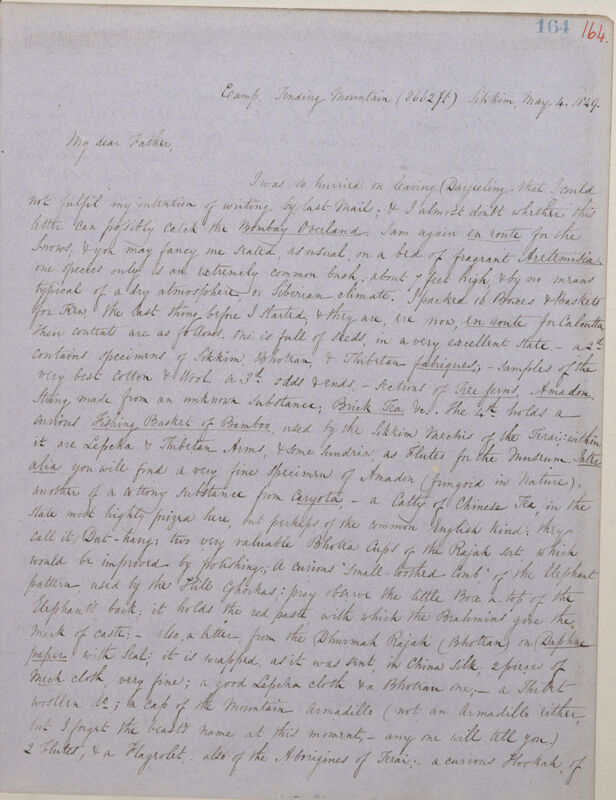 164 164.
Camp, Tonding Mountain (8662 ft) Sikkim, May. 4. 1849.
My dear Father,
I was so hurried on leaving Darjeeling that I could
not fulfil my intention of writing by last Mail; & I almost doubt whether this
letter can possibly catch the Bombay Overland. I am again en route for the
Snows, & you may fancy me seated, as usual, on a bed of fragrant Artemisia.
one species only is an extremely common bush, about 7 feet high, & by no means
typical of a dry atmosphere, or Siberian climate. I packed 10 Boxes & baskets
for Kew the last thing before I started, & they are, ere now, en route for Calcutta
their contents are as follows. one is full of seeds, in a very excellent state, – a 2d.
contains specimens of Sikkim, Bhotan, & Thibetan fabriques; – Samples of the
very best Cotton & Wool. a 3d. odds & ends, – Sections of Tree ferns, Amadou,
String made from an unknown substance; Brick Tea &c. the 4th. holds a
curious Fishing Basket of Bamboo, used by the Sikkim Mechis of the Terai; within
it are Lepcha & Thibetan Arms, & some sundries, as Flutes for the Museum. Inter
alia you will find a very fine specimen of Amadou (fungoid in nature),
another of a cottony substance from Caryota, – a Catty of Chinese Tea, in the
state most highly prized here, but perhaps of the common English kind: they
call it; two very valuable Bhotea Cups of the Rajah sort which
would be improved by polishing; A curious "small-toothed comb" of the Elephant
pattern, used by the Hill Ghorkas; pray observe the little Box a top of the
Elephant's back; it holds the red paste with which the Brahmins give the
mark of caste; – also, a letter from the Dhurmah Rajah (Bhotan) on Daphne
paper with Seal; it is wrapped, as it was sent, in China Silk, 2 pieces of
Mech cloth very fine; a good Lepcha cloth & a Bhotean one; – a Thibet
woollen Do; a cap of the Mountain Armadillo (not an Armadillo either,
but I forget the beast's name at this moment, – any one will tell you)
2 Flutes, & a Flageolet, also of the Aborigines of Terai; – a curious Hookah, of